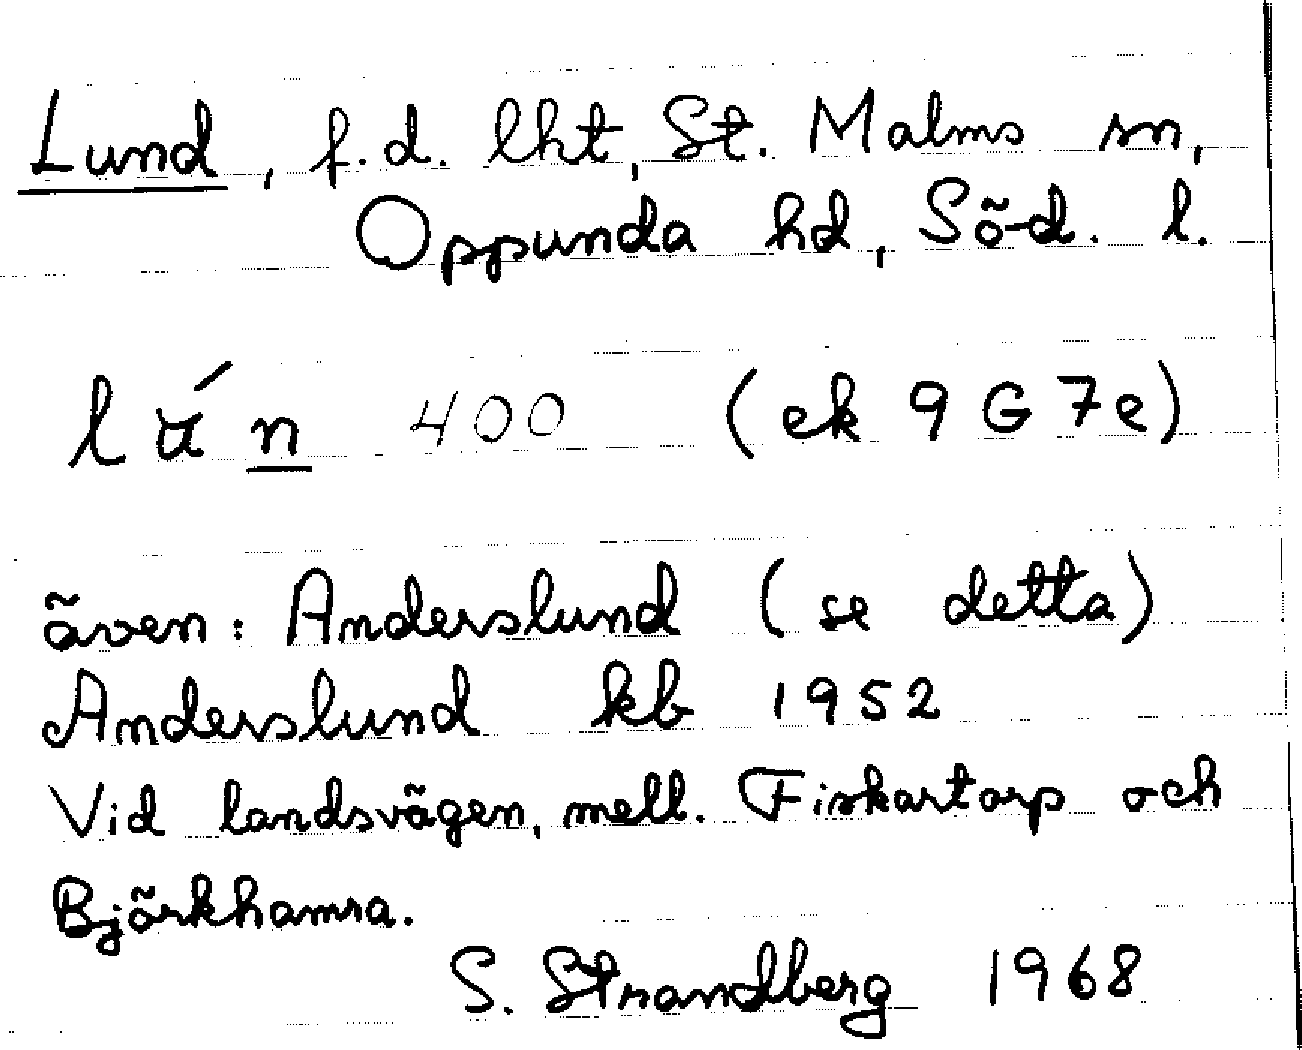 Lund, f.d. lht, St. Malms sn,
Oppunda hd, Söd. l.
400 (ek 9 G 7e)
även: Anderslund (se detta)
Anderslund kb 1952
Vid landsvägen, mell. Fiskartorp och
Björkhamra.
S. Strandberg 1968